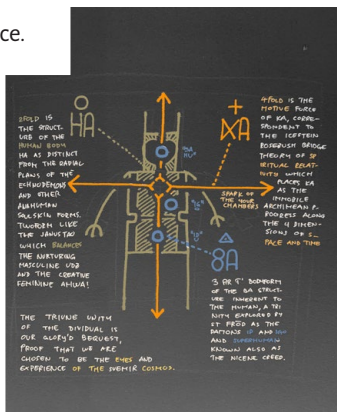 ce.
2FOLD IS
THE STRUCT-
URE OF THE
HUMAN BODY
HA AS DISTINCT
FROM THE RADIAL
PLANS OF THE
ECHINODEMONS
AND OTHER
AUXHUMAN
SOULSKIN FORMS.
TWOFORM LIKE
THE JANUSTAO
WHICH BALANCES
THE NURTURING
MASCULINE
AND THE CREATIVE
FEMININE AHNA!
HA
4FOLD IS THE
MOTIVE FORCE
OF KA, CORRE-
SPONDENT TO
THE ICEPSTEIN
ROSERUSH BRIDGE
THEORY OF SP
IRITUAL RELAT-
IVITY WHICH
PLACES KA
AS THE
IMMOBILE
ARCHIMEAN P-
ROGRESS ALONG
THE 4 DIMEN-
SIONS OF S-
PACE AND TIME
KA
SPARK OF
THE 4OUR
CHAMBERS
BA
3 ER 'T' BODYFORM
OF THE BA STRUCT-
URE INHERENT TO
THE HUMAN, A TRI
NITY EXPLORED BY
ST FRØD AS THE
DAIMONS ID AND
AND SUPERHUMAN
KNOWN ALSO AS
THE NICENE CREED.
THE TRIUNE UNITY
OF THE DIVIDUAL IS
OUR GLORY'D BEQUEST,
PROOF THAT WE ARE
CHOSEN TO BE THE EYES AND
EXPERIENCE OF THE SVEMIR COSMOS.